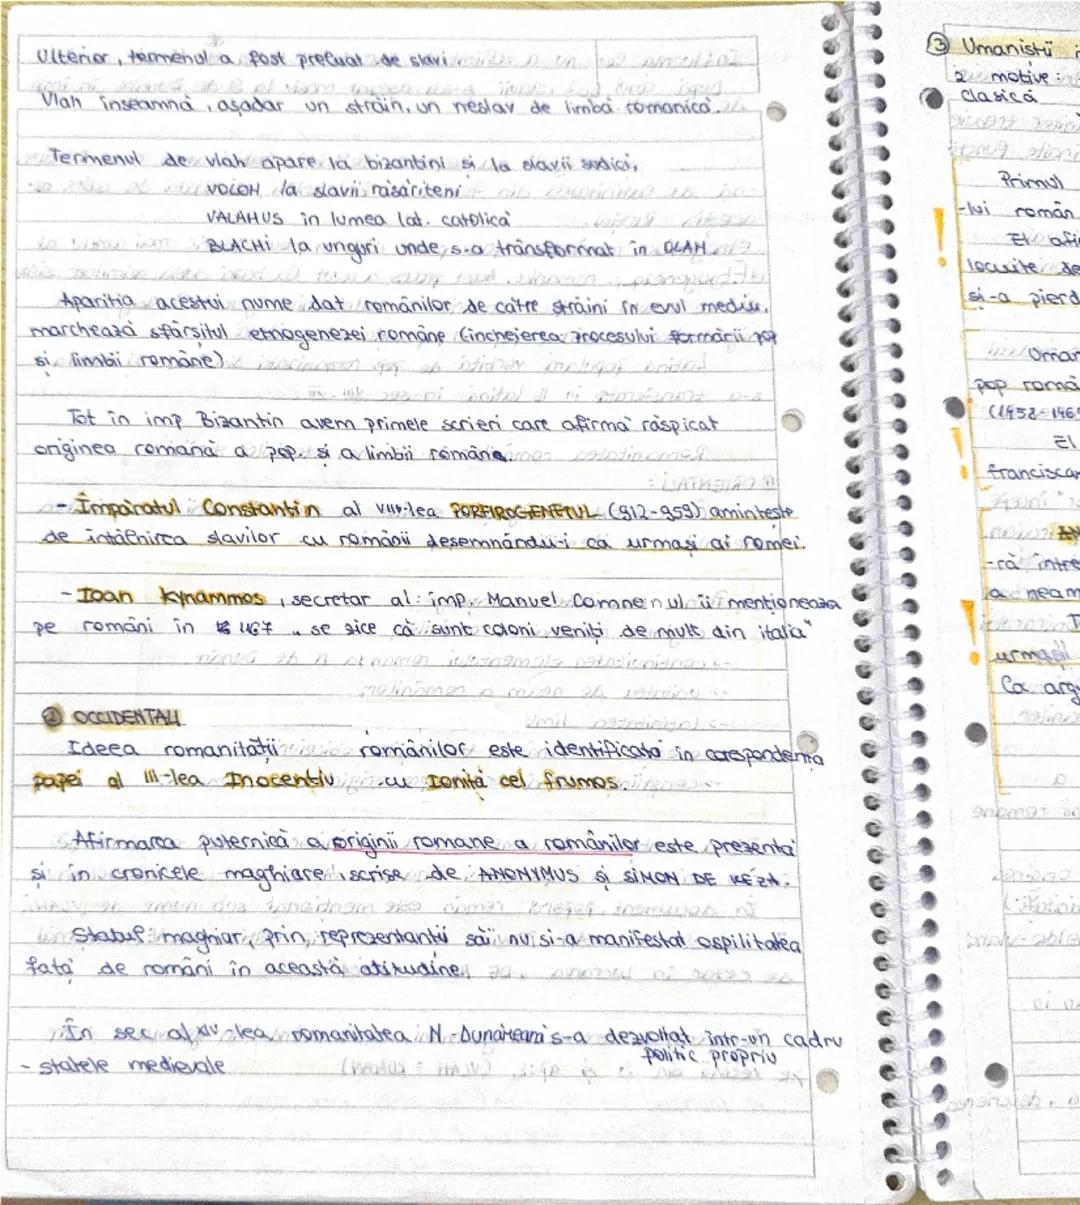 Ulterior, termenul a fost preluat de slavi
Vlah înseamnă, așadar un străin, un neslav de limbă romanică.
Termenul de vlah apare la bizantini și la slavii sudici,
VOLOH la slavii răsăriteni
VALAHUS în lumea lat. catolică
BLACHI la unguri unde s-a transformat în OLAH.
Apariția acestui nume dat românilor de către străini în evul mediu,
marchează sfârșitul etnogenezei române (încheierea procesului formării pop
și limbii române)
Tot în imp Bizantin avem primele scrieri care afirmă răspicat
originea romană a pop. și a limbii române.
- Împăratul Constantin al VII-lea PORFIROGENETUL (912-959) amintește
de întâlnirea slavilor cu românii desemnându-i ca urmași ai romei.
- Ioan Kynammos, secretar al imp. Manuel Comnenul îi menționează
pe români în 1167 „se zice că sunt coloni veniți de mult din italia"
② OCCIDENTALI
Ideea romanității românilor este identificată în corespondența
papei al III-lea Inocențiu cu Ioniță cel frumos.
Afirmarea puternică a originii romane a românilor este prezentă
și în cronicele maghiare, scrise de ANONYMUS și SIMON DE KEZA.
Statul maghiar, prin reprezentanții săi nu si-a manifestat ospilitatea
față de români în această atitudine,
În sec al XIV-lea romanitatea N-Dunăreană s-a dezvoltat într-un cadru
politic propriu
- statele medievale
③ Umaniștii
2 motive:
clasică
Primul
-lui român
El afi
locuite de
și-a pierd
Uman
pop româ
El
franciscan
-că între
a neam
urmașii
Ca arg